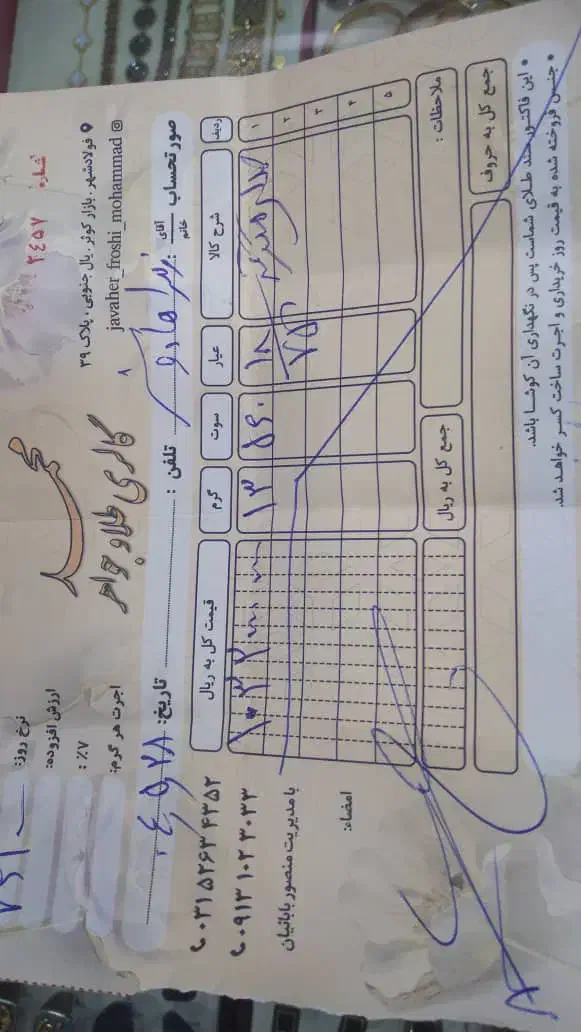 شماره ۲۴۵۷
گالری طلا و جواهر
محمد
نرخ روز:
ارزش افزوده:
۷٪ :
اجرت هر گرم:
فولادشهر، بازار کوثر، بال جنوبی، پلاک ۳۹
javaher_froshi_mohammad
صورتحساب آقای خانم : تلفن : تاریخ:
ردیف شرح کالا عیار سوت گرم قیمت کل به ریال
۱ ۱۸ ۵۶۰ ۱۳
۷۵۰
۲
۳
۴
۵
ملاحظات : جمع کل به ریال
جمع کل به حروف
۰۳۱۵۲۶۳۴۳۵۲
۰۹۱۳۱۰۲۳۰۳۳
با مدیریت منصور بابائیان
امضاء:
• این فاکتور سند طلای شماست پس در نگهداری آن کوشا باشد.
• جنس فروخته شده به قیمت روز خریداری و اجرت ساخت کسر خواهد شد.